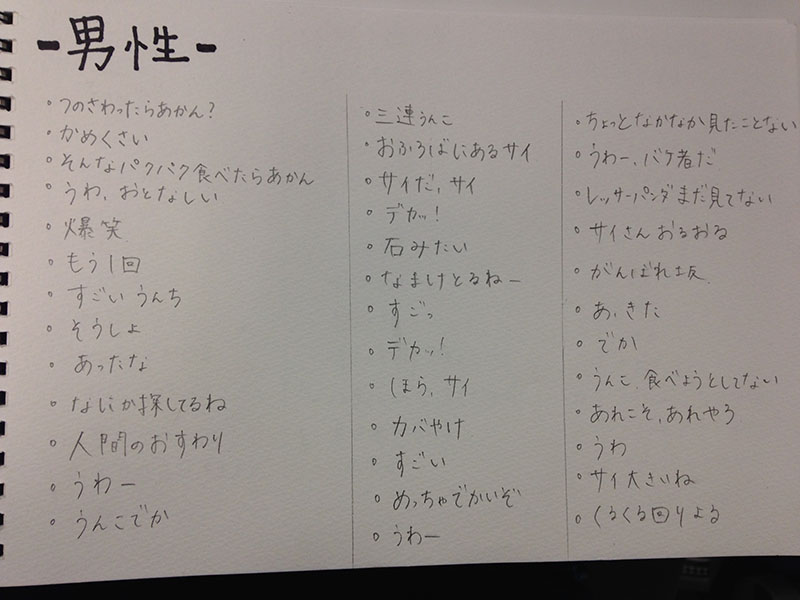 -男性-
・つのさわったらあかん?
・かめくさい
・そんなパクパク食べたらあかん
・うわ、おとなしい
・爆笑
・もう1回
・すごいうんち
・そうしよ
・あったな
・なにか探してるね
・人間のおすわり
・うわー
・うんこでか
・三連うんこ
・おふろばにあるサイ
・サイだ、サイ
・デカッ!
・石みたい
・なまけとるねー
・すごっ
・デカッ!
・ほら、サイ
・カバやけ
・すごい
・めっちゃでかいぞ
・うわー
・ちょっとなかなか見たことない
・うわー、バケ者だ
・レッサーパンダまだ見てない
・サイさんおるおる
・がんばれ坂
・あ、きた
・でか
・うんこ、食べようとしてない
・あれこそ、あれやろ
・うわ
・サイ大きいね
・くるくる回りよる